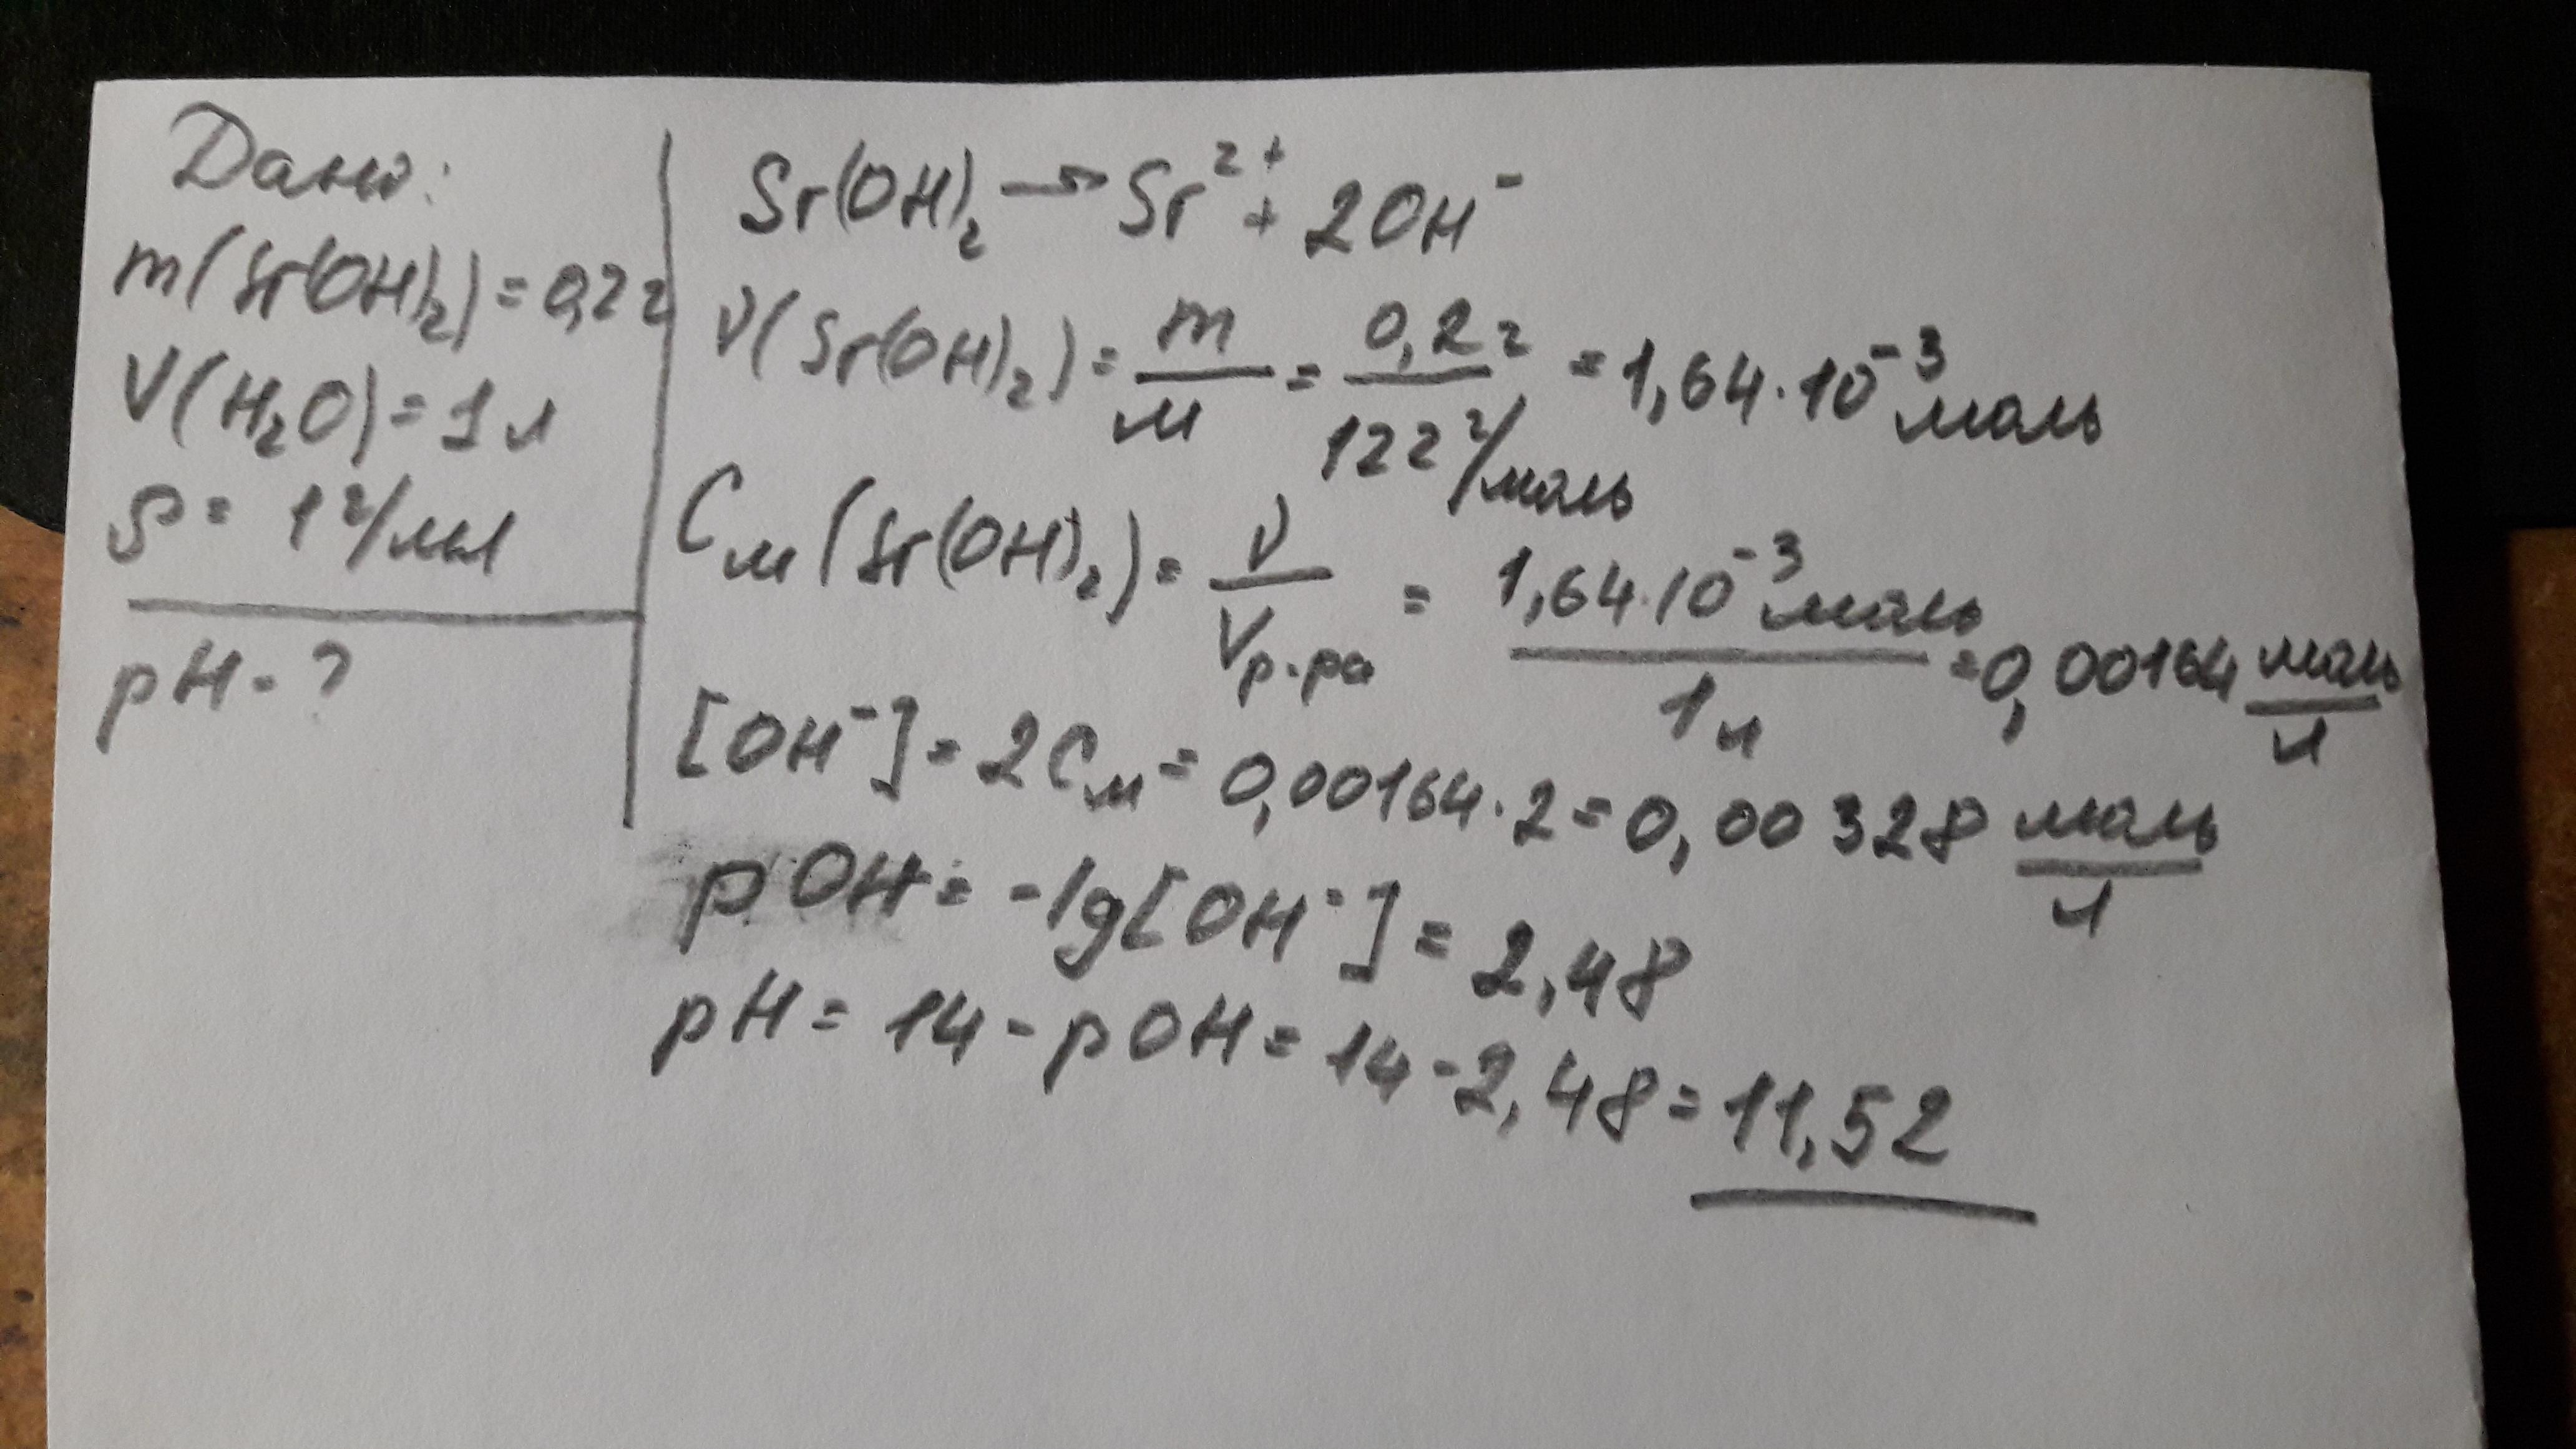 Дано:
m(Sr(OH)₂) = 0,2 г
V(H₂O) = 1 л
ρ = 1 г/мл
pH - ?
Sr(OH)₂ → Sr²⁺ + 2OH⁻
ν(Sr(OH)₂) = m/M = 0,2 г/122 г/моль = 1,64·10⁻³ моль
Cм(Sr(OH)₂) = ν/Vр-ра = 1,64·10⁻³ моль/1 л = 0,00164 моль/л
[OH⁻] = 2Cм = 0,00164·2 = 0,00328 моль/л
pOH = -lg[OH⁻] = 2,48
pH = 14 - pOH = 14 - 2,48 = 11,52